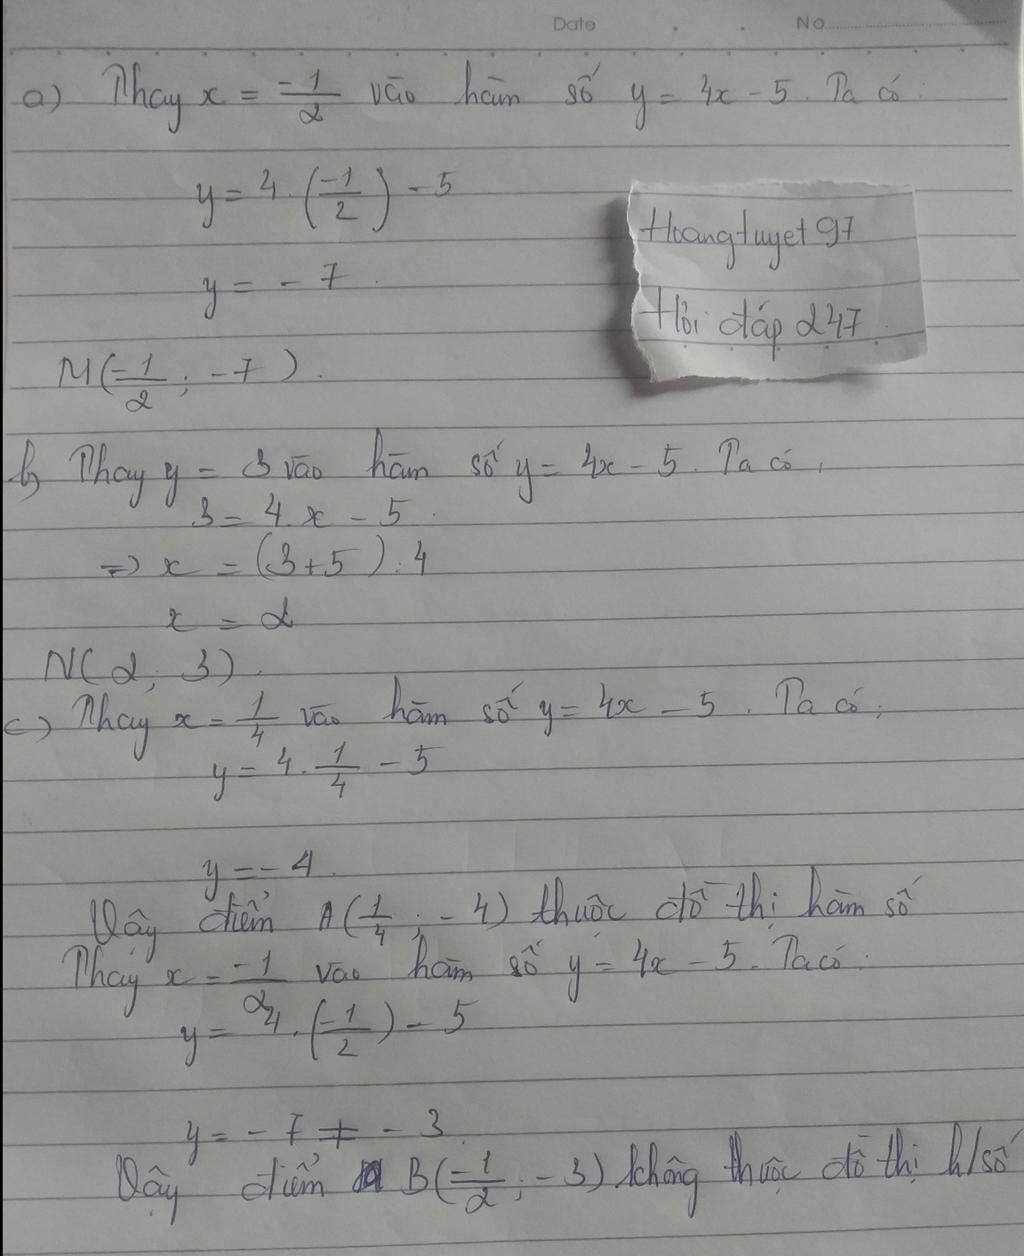 Date No
a) Thay x = -1/2 vào hàm số y = 4x - 5. Ta có:
y = 4. (-1/2) - 5
y = - 7
Hoangtuyet 97
Hỏi đáp 247
M(-1/2; -7).
b) Thay y = 3 vào hàm số y = 4x - 5. Ta có:
3 = 4.x - 5.
=> x = (3+5) : 4
x = 2
N(2; 3).
c) Thay x = 1/4 vào hàm số y = 4x - 5. Ta có:
y = 4. 1/4 - 5
y = - 4.
Vậy điểm A(1/4; -4) thuộc đồ thị hàm số
Thay x = -1/2 vào hàm số y = 4x - 5. Ta có:
y = 4. (-1/2) - 5
y = - 7 ≠ - 3
Vậy điểm B(-1/2; -3) không thuộc đồ thị h/số